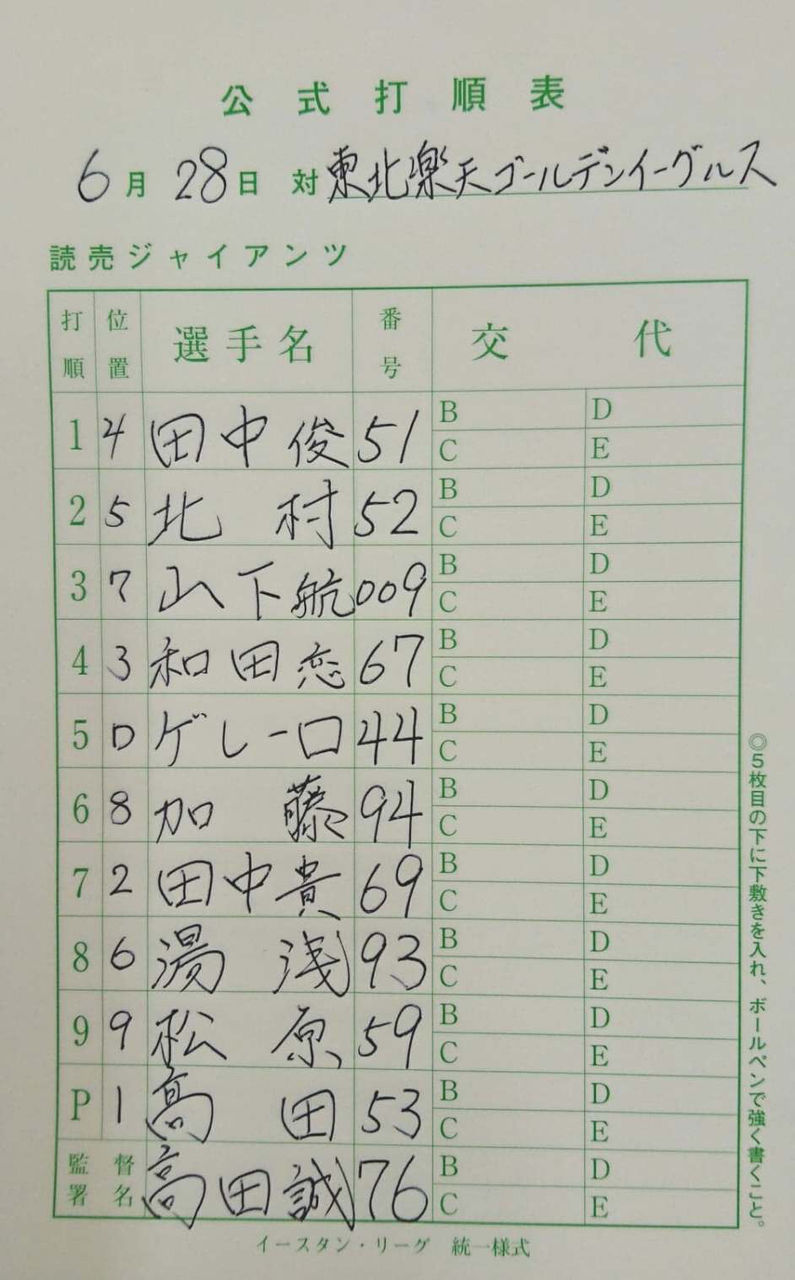 公式打順表
6月28日 対 東北楽天ゴールデンイーグルス
読売ジャイアンツ
打順 位置 選手名 番号 交代
1 4 田中俊 51 B D
C E
2 5 北村 52 B D
C E
3 7 山下航 009 B D
C E
4 3 和田恋 67 B D
C E
5 D ゲレーロ 44 B D
C E
6 8 加藤 94 B D
C E
7 2 田中貴 69 B D
C E
8 6 湯浅 93 B D
C E
9 9 松原 59 B D
C E
P 1 高田 53 B D
C E
監督署名 高田誠 76 B D
C E
◎5枚目の下に下敷きを入れ、ボールペンで強く書くこと。
イースタン・リーグ 統一様式